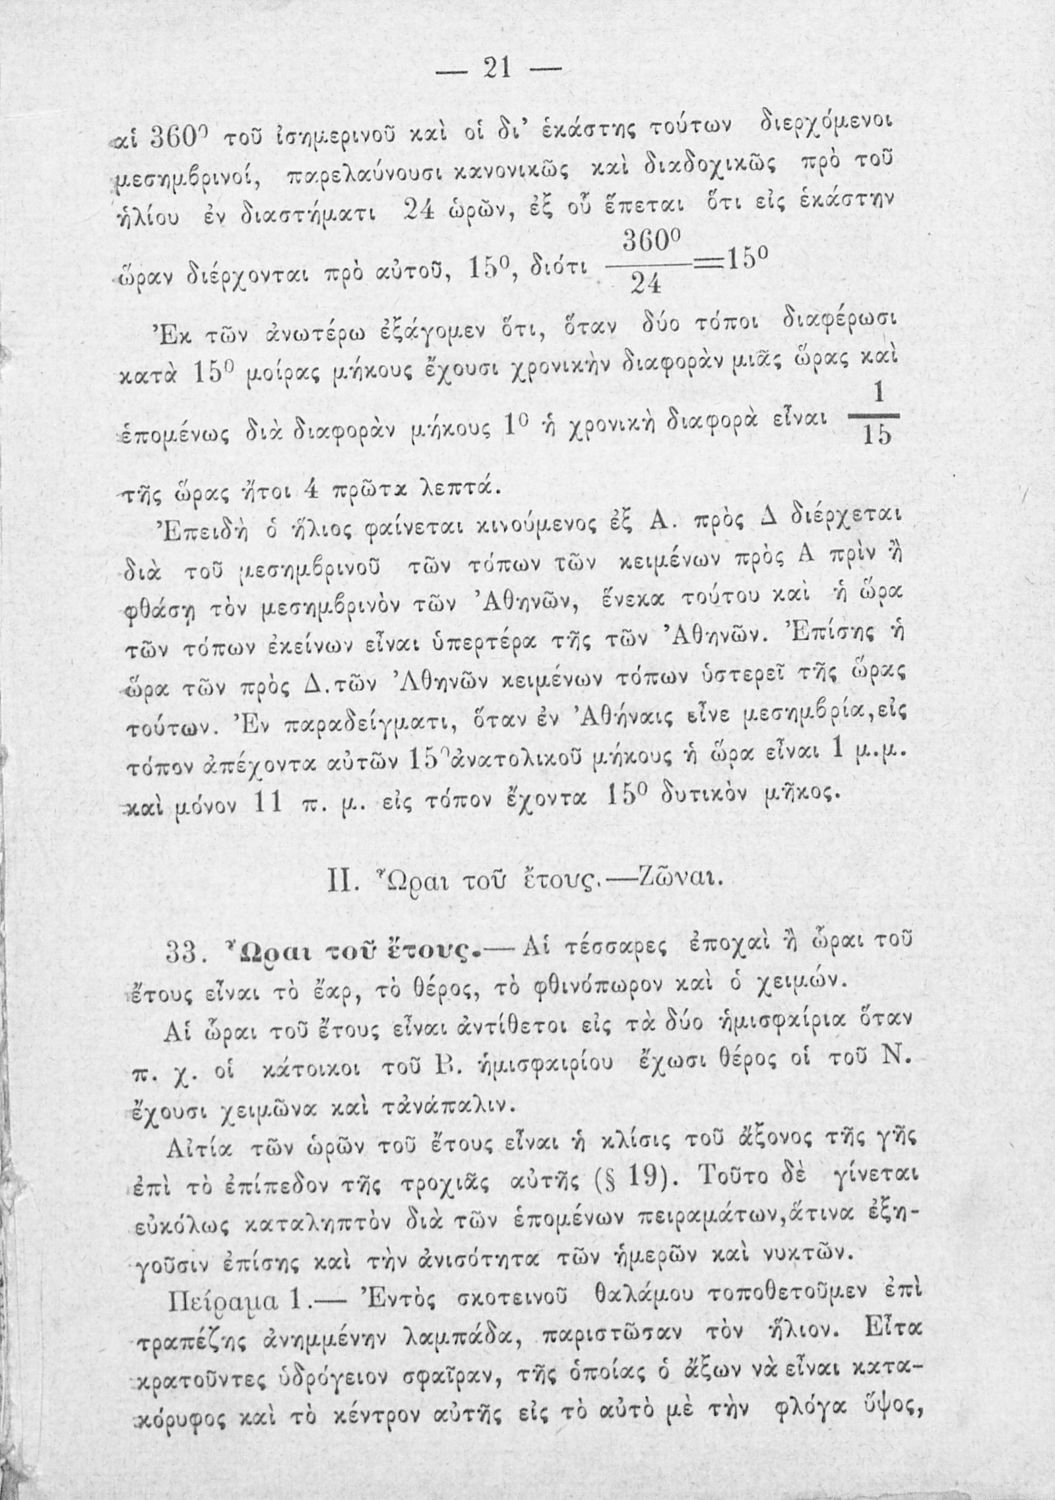 — 21 —
αἱ 360⁰ τοῦ ἰσημερινοῦ καὶ οἱ δι' ἑκάστης τούτων διερχόμενοι
μεσημβρινοί, παρελαύνουσι κανονικῶς καὶ διαδοχικῶς πρὸ τοῦ
ἡλίου ἐν διαστήματι 24 ὡρῶν, ἐξ οὗ ἕπεται ὅτι εἰς ἑκάστην
ὥραν διέρχονται πρὸ αὐτοῦ, 15⁰, διότι 360⁰/24=15⁰
Ἐκ τῶν ἀνωτέρω ἐξάγομεν ὅτι, ὅταν δύο τόποι διαφέρωσι
κατὰ 15⁰ μοίρας μήκους ἔχουσι χρονικὴν διαφορὰν μιᾶς ὥρας καὶ
ἑπομένως διὰ διαφορὰν μήκους 1⁰ ἡ χρονικὴ διαφορὰ εἶναι 1/15
τῆς ὥρας ἤτοι 4 πρῶτα λεπτά.
Ἐπειδὴ ὁ ἥλιος φαίνεται κινούμενος ἐξ Α. πρὸς Δ διέρχεται
διὰ τοῦ μεσημβρινοῦ τῶν τόπων τῶν κειμένων πρὸς Α πρὶν ἢ
φθάσῃ τὸν μεσημβρινὸν τῶν Ἀθηνῶν, ἕνεκα τούτου καὶ ἡ ὥρα
τῶν τόπων ἐκείνων εἶναι ὑπερτέρα τῆς τῶν Ἀθηνῶν. Ἐπίσης ἡ
ὥρα τῶν πρὸς Δ.τῶν Ἀθηνῶν κειμένων τόπων ὑστερεῖ τῆς ὥρας
τούτων. Ἐν παραδείγματι, ὅταν ἐν Ἀθήναις εἶνε μεσημβρία,εἰς
τόπον ἀπέχοντα αὐτῶν 15⁰ἀνατολικοῦ μήκους ἡ ὥρα εἶναι 1 μ.μ.
καὶ μόνον 11 π. μ. εἰς τόπον ἔχοντα 15⁰ δυτικὸν μῆκος.
II. Ὧραι τοῦ ἔτους.—Ζῶναι.
33. Ὧραι τοῦ ἔτους.— Αἱ τέσσαρες ἐποχαὶ ἢ ὧραι τοῦ
ἔτους εἶναι τὸ ἔαρ, τὸ θέρος, τὸ φθινόπωρον καὶ ὁ χειμών.
Αἱ ὧραι τοῦ ἔτους εἶναι ἀντίθετοι εἰς τὰ δύο ἡμισφαίρια ὅταν
π. χ. οἱ κάτοικοι τοῦ Β. ἡμισφαιρίου ἔχωσι θέρος οἱ τοῦ Ν.
ἔχουσι χειμῶνα καὶ τἀνάπαλιν.
Αἰτία τῶν ὡρῶν τοῦ ἔτους εἶναι ἡ κλίσις τοῦ ἄξονος τῆς γῆς
ἐπὶ τὸ ἐπίπεδον τῆς τροχιᾶς αὐτῆς (§ 19). Τοῦτο δὲ γίνεται
εὐκόλως καταληπτὸν διὰ τῶν ἑπομένων πειραμάτων,ἅτινα ἐξη-
γοῦσιν ἐπίσης καὶ τὴν ἀνισότητα τῶν ἡμερῶν καὶ νυκτῶν.
Πείραμα 1.— Ἐντὸς σκοτεινοῦ θαλάμου τοποθετοῦμεν ἐπὶ
τραπέζης ἀνημμένην λαμπάδα, παριστῶσαν τὸν ἥλιον. Εἶτα
κρατοῦντες ὑδρόγειον σφαῖραν, τῆς ὁποίας ὁ ἄξων νὰ εἶναι κατα-
κόρυφος καὶ τὸ κέντρον αὐτῆς εἰς τὸ αὐτὸ μὲ τὴν φλόγα ὕψος,